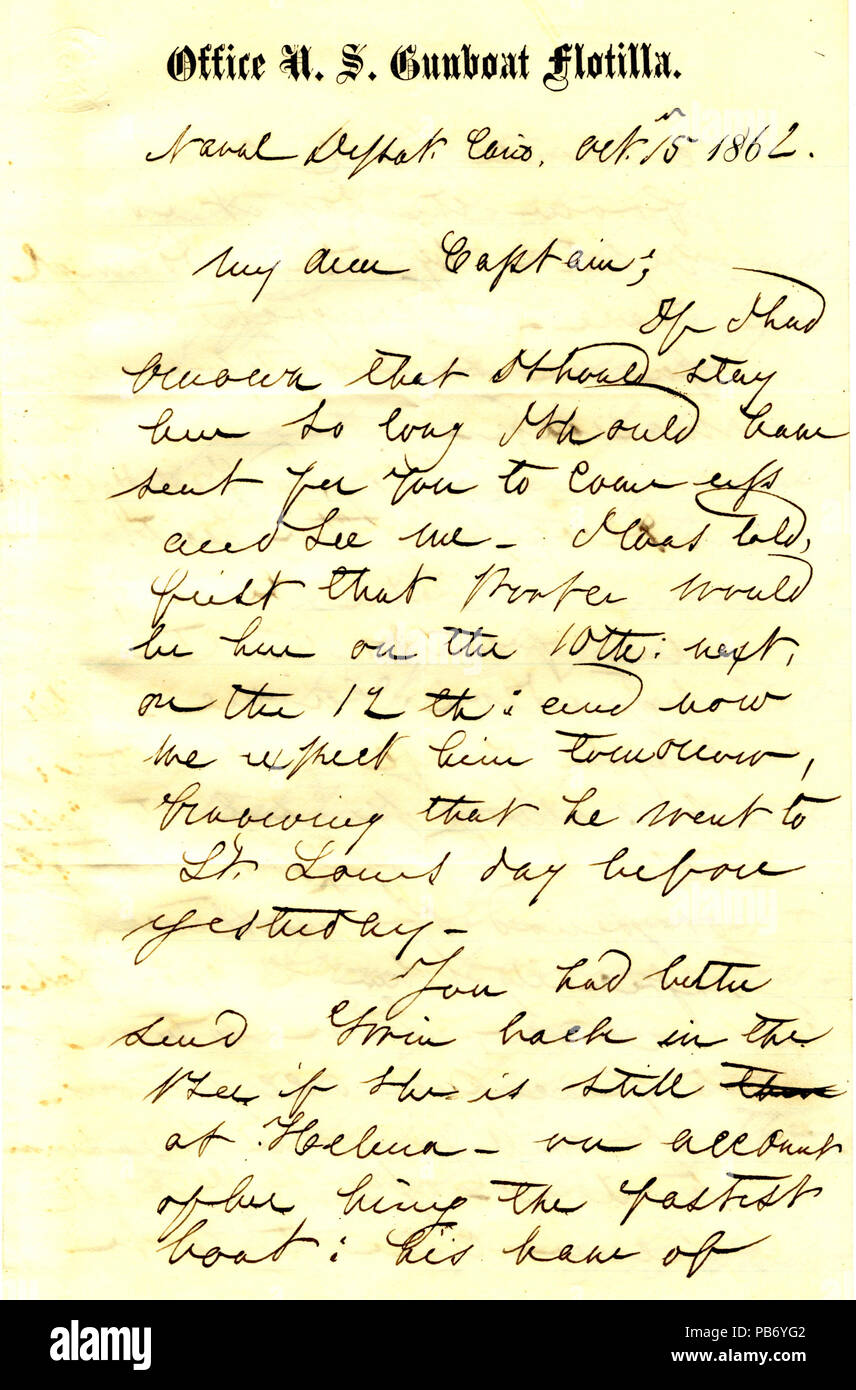 Office U. S. Gunboat Flotilla.
Naval Depot. Cairo, Oct. 15th 1862.
My dear Captain;
If I had
known that I should stay
here so long I should have
sent for you to come up
and see me - I was told,
first that Porter would
be here on the 10th: next,
on the 12th: and now
we expect him tomorrow,
knowing that he went to
St. Louis day before
yesterday -
You had better
send Gwin back in the
Bee if she is still there
at Helena - on account
of her being the fastest
boat: his leave of
alamy
Image ID: PB6YG2
www.alamy.com